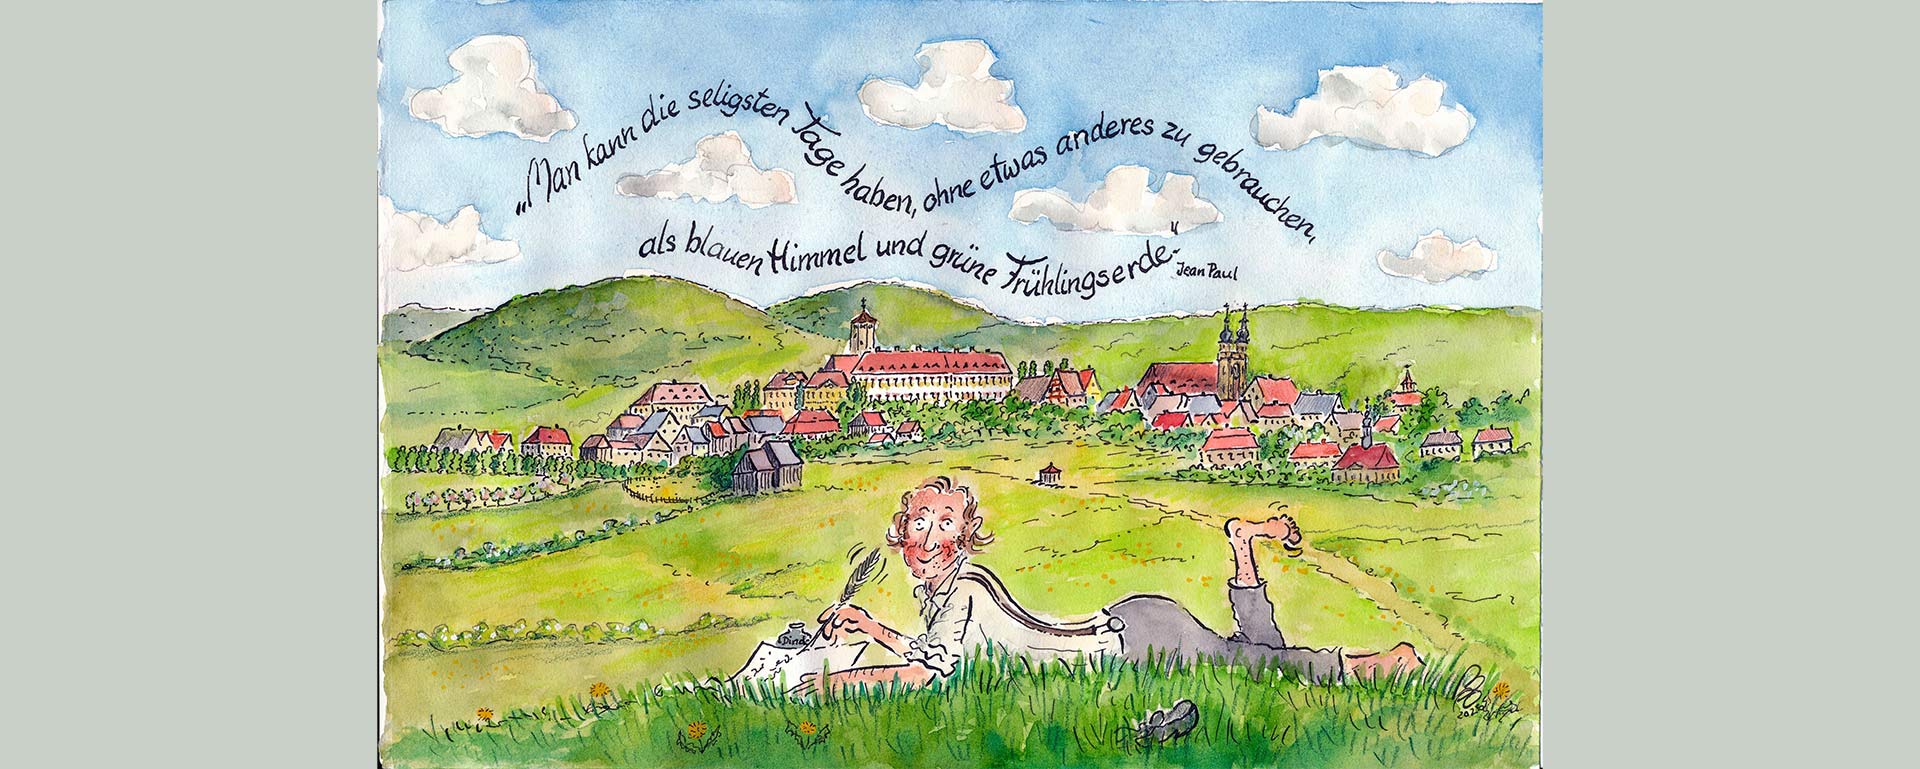 „Man kann die seligsten Tage haben, ohne etwas anderes zu gebrauchen,
als blauen Himmel und grüne Frühlingserde."
Jean Paul